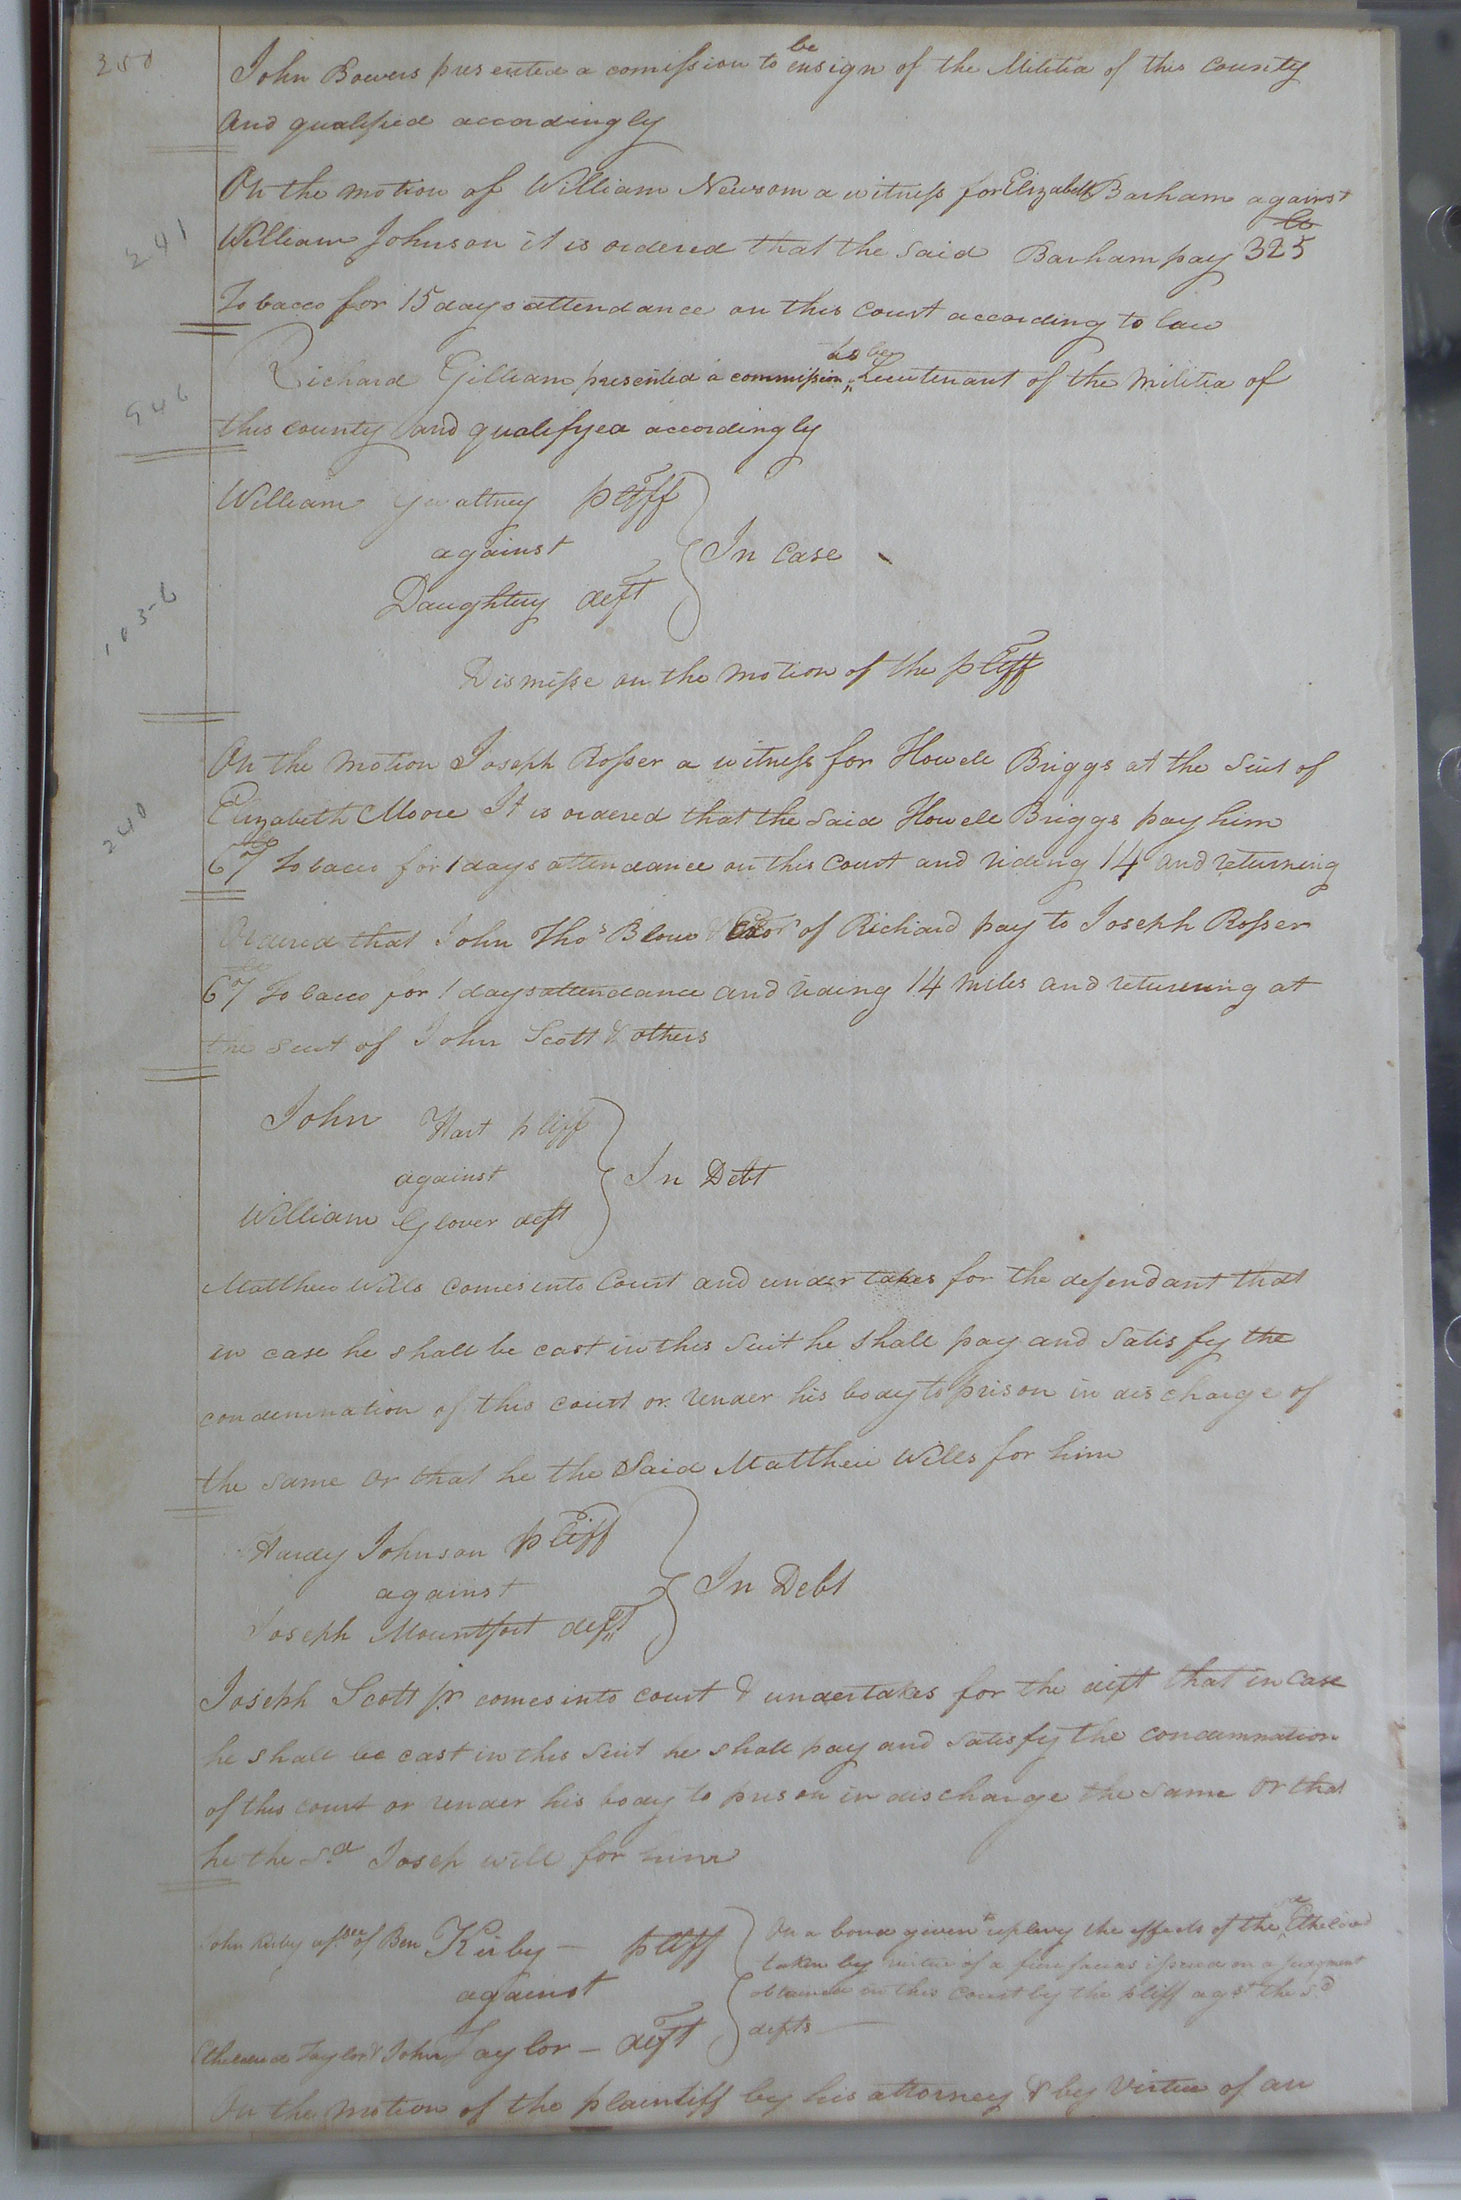 John Bowers presented a comission to be ensign of the Militia of this county
and qualified accordingly
On the motion of William Newsom a witness for Elizabeth Barham against
241
William Johnson it is ordered that the said Barham pay 325 lb
Tobacco for 15 days attendance on this court according to law
Richard Gilliam presented a commission to be Lieutenant of the militia of
546
this county and qualifyed accordingly
William Gwaltney pltff
against
In Case
Daughtry deft
Dismisse on the motion of the pltff
On the motion Joseph Rosser a witness for Howell Briggs at the suit of
Elizabeth Moore It is ordered that the said Howell Briggs pay him
240
67 lb tobacco for 1 days attendance on this court and riding 14 and returning
Ordered that John Thos Blow Exor of Richard pay to Joseph Rosser
67 lb tobacco for 1 days attendance and riding 14 miles and returning at
the suit of John Scott & others
John Hart pltff
against
In Debt
William Glover deft
Matthew Wills comes into Court and undertakes for the defendant that
in case he shall be cast in this suit he shall pay and satisfy the
condemnation of this court or render his body to prison in discharge of
the same or that he the said Matthew Wills for him
Hardy Johnson pltff
against
In Debt
Joseph Mountfort deft
Joseph Scott jr comes into court & undertakes for the deft that in case
he shall be cast in this suit he shall pay and satisfy the condemnation
of this court or render his body to prison in discharge the same or that
he the sd Joseph will for him
John Kirby assee of Ben Kirby — pltff
against
Etheldred Taylor & John Taylor — deft
On a bond given to replevy the effects of the sd Etheldred
taken by virtue of a fieri facias issued on a judgment
obtained in this Court by the pltff agst the sd
defts —
On the motion of the plaintiff by his attorney & by virtue of an